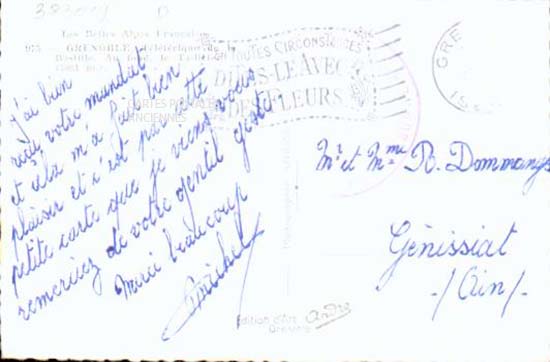 Les Belles Alpes Françaises
975 - GRENOBLE - Téléférique de la
Bastille. Au fond, le
EN TOUTES CIRCONSTANCES
DITES-LE AVEC
DES FLEURS
GRE
CARTES POSTALES
ANCIENNES
J'ai bien
reçu votre mandat
et cela m'a fait bien
plaisir et c'est par cette
petite carte que je viens vous
remerciez de votre gentil geste
Merci beaucoup
Michel
Mr et Mme R. Dommange
Génissiat
-/Ain/-
Edition d'Art
André
Grenoble